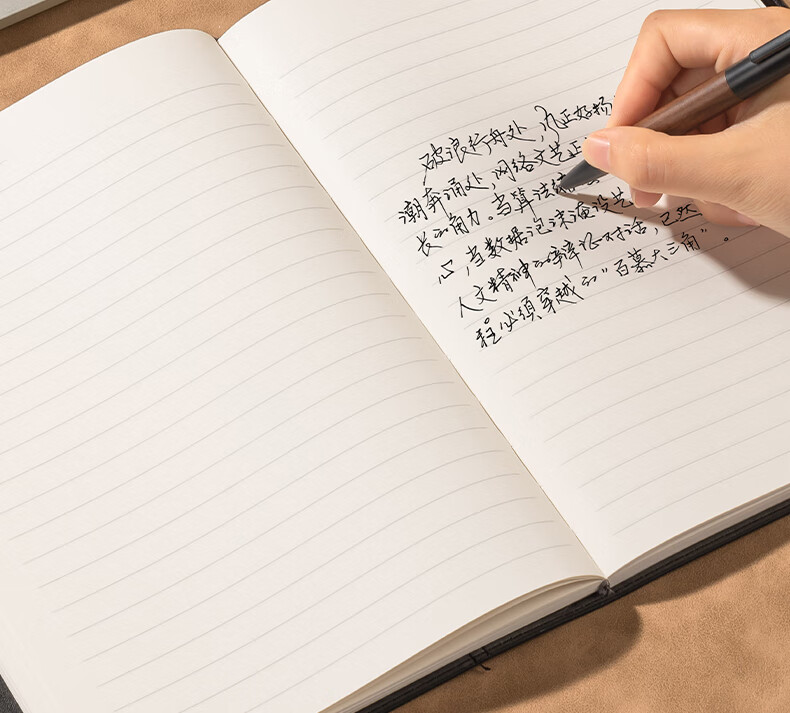 破浪行舟处，九正好扬
潮奔涌处，网络文艺正
长的角力。当算法
心，当数据泡沫淹没艺
人文精神的辩证对话，已然
程必须穿越的“百慕大三角”。